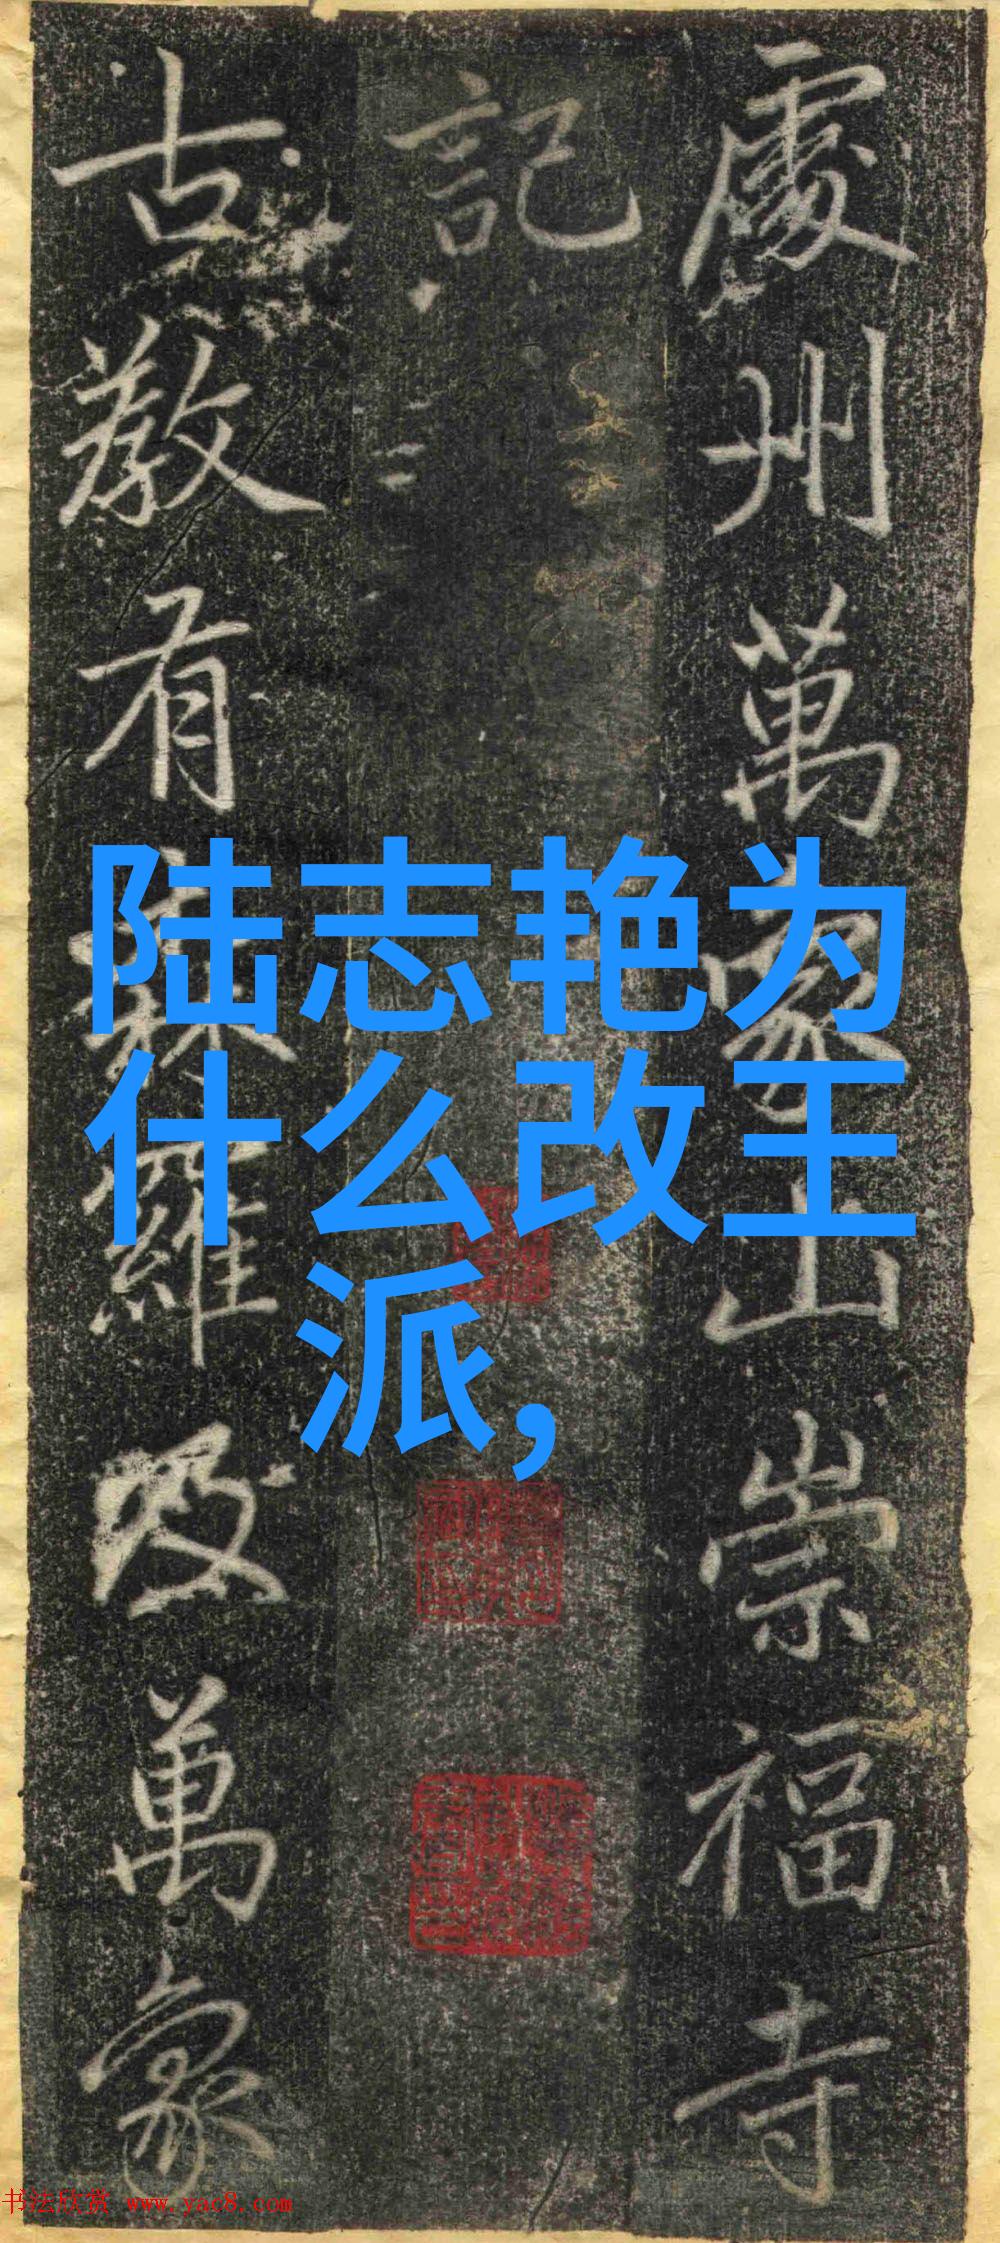 處州萬象山崇福寺
記
古教有森羅及萬象
陆志艳为
什么改王
派,
书法欣赏 www.yac8.com